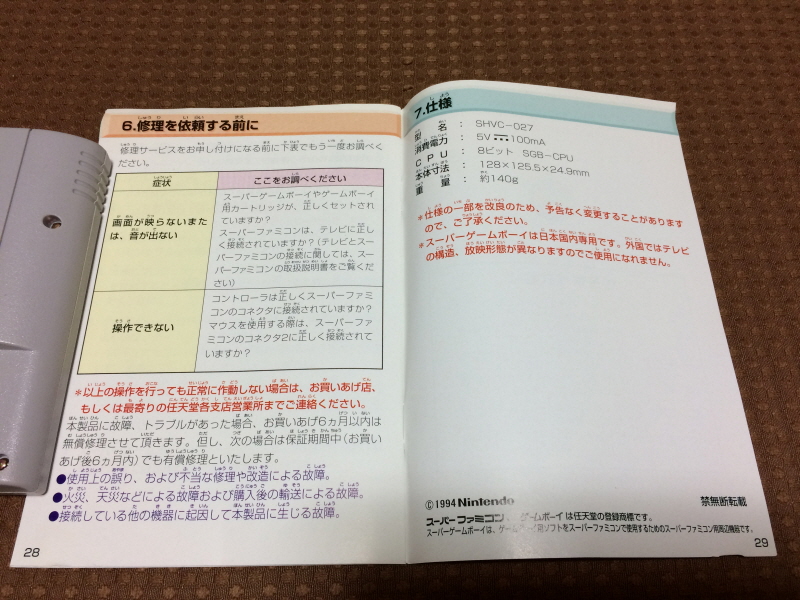 6.修理を依頼する前に
修理サービスをお申し付けになる前に下表でもう一度お調べく
ださい。
症状
ここをお調べください
画面が映らないまた
は、音が出ない
スーパーゲームボーイやゲームボーイ
用カートリッジが、正しくセットされ
ていますか?
スーパーファミコンは、テレビに正し
く接続されていますか?(テレビとスー
パーファミコンの接続に関しては、スー
パーファミコンの取扱説明書をご覧くだ
さい)
操作できない
コントローラは正しくスーパーファミ
コンのコネクタに接続されていますか?
マウスを使用する際は、スーパーファ
ミコンのコネクタ2に正しく接続されて
いますか?
*以上の操作を行っても正常に作動しない場合は、お買いあげ店、
もしくは最寄りの任天堂各支店営業所までご連絡ください。
本製品に故障、トラブルがあった場合、お買いあげ6ヵ月以内は
無償修理させて頂きます。但し、次の場合は保証期間中(お買い
あげ後6ヵ月内)でも有償修理といたします。
●使用上の誤り、および不当な修理や改造による故障。
●火災、天災などによる故障および購入後の輸送による故障。
●接続している他の機器に起因して本製品に生じる故障。
28
7.仕様
型名 : SHVC-027
消費電力 : 5V⎓100mA
CPU : 8ビット SGB-CPU
本体寸法 : 128×125.5×24.9mm
重量 : 約140g
*仕様の一部を改良のため、予告なく変更することがあります
ので、ご了承ください。
*スーパーゲームボーイは日本国内専用です。外国ではテレビ
の構造、放映形態が異なりますのでご使用になれません。
©1994 Nintendo
禁無断転載
スーパーファミコン、ゲームボーイは任天堂の登録商標です。
スーパーゲームボーイは、ゲームボーイ用ソフトをスーパーファミコンで使用するためのスーパーファミコン用周辺機器です。
29